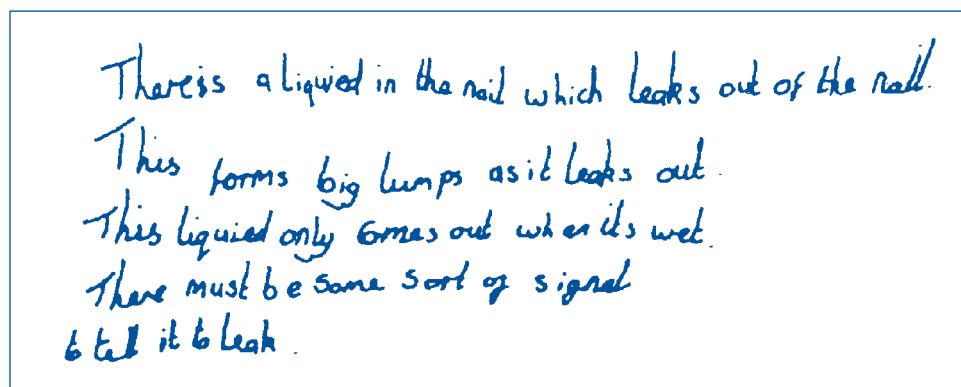 There is a liquied in the nail which leaks out of the nail.
This forms big lumps as it leaks out.
This liquied only comes out when its wet.
There must be some sort of signal
to tell it to leak.